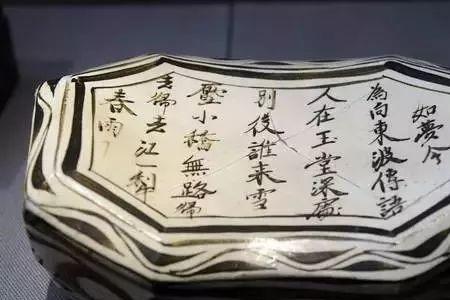 如夢令
為向東波傳語
人在玉堂深處
別後誰來雪
壓小橋無路歸
去歸去江一犁
春雨